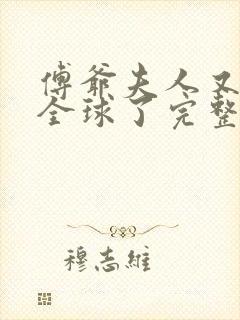 傅爺夫人又
全球了完整
穆志維